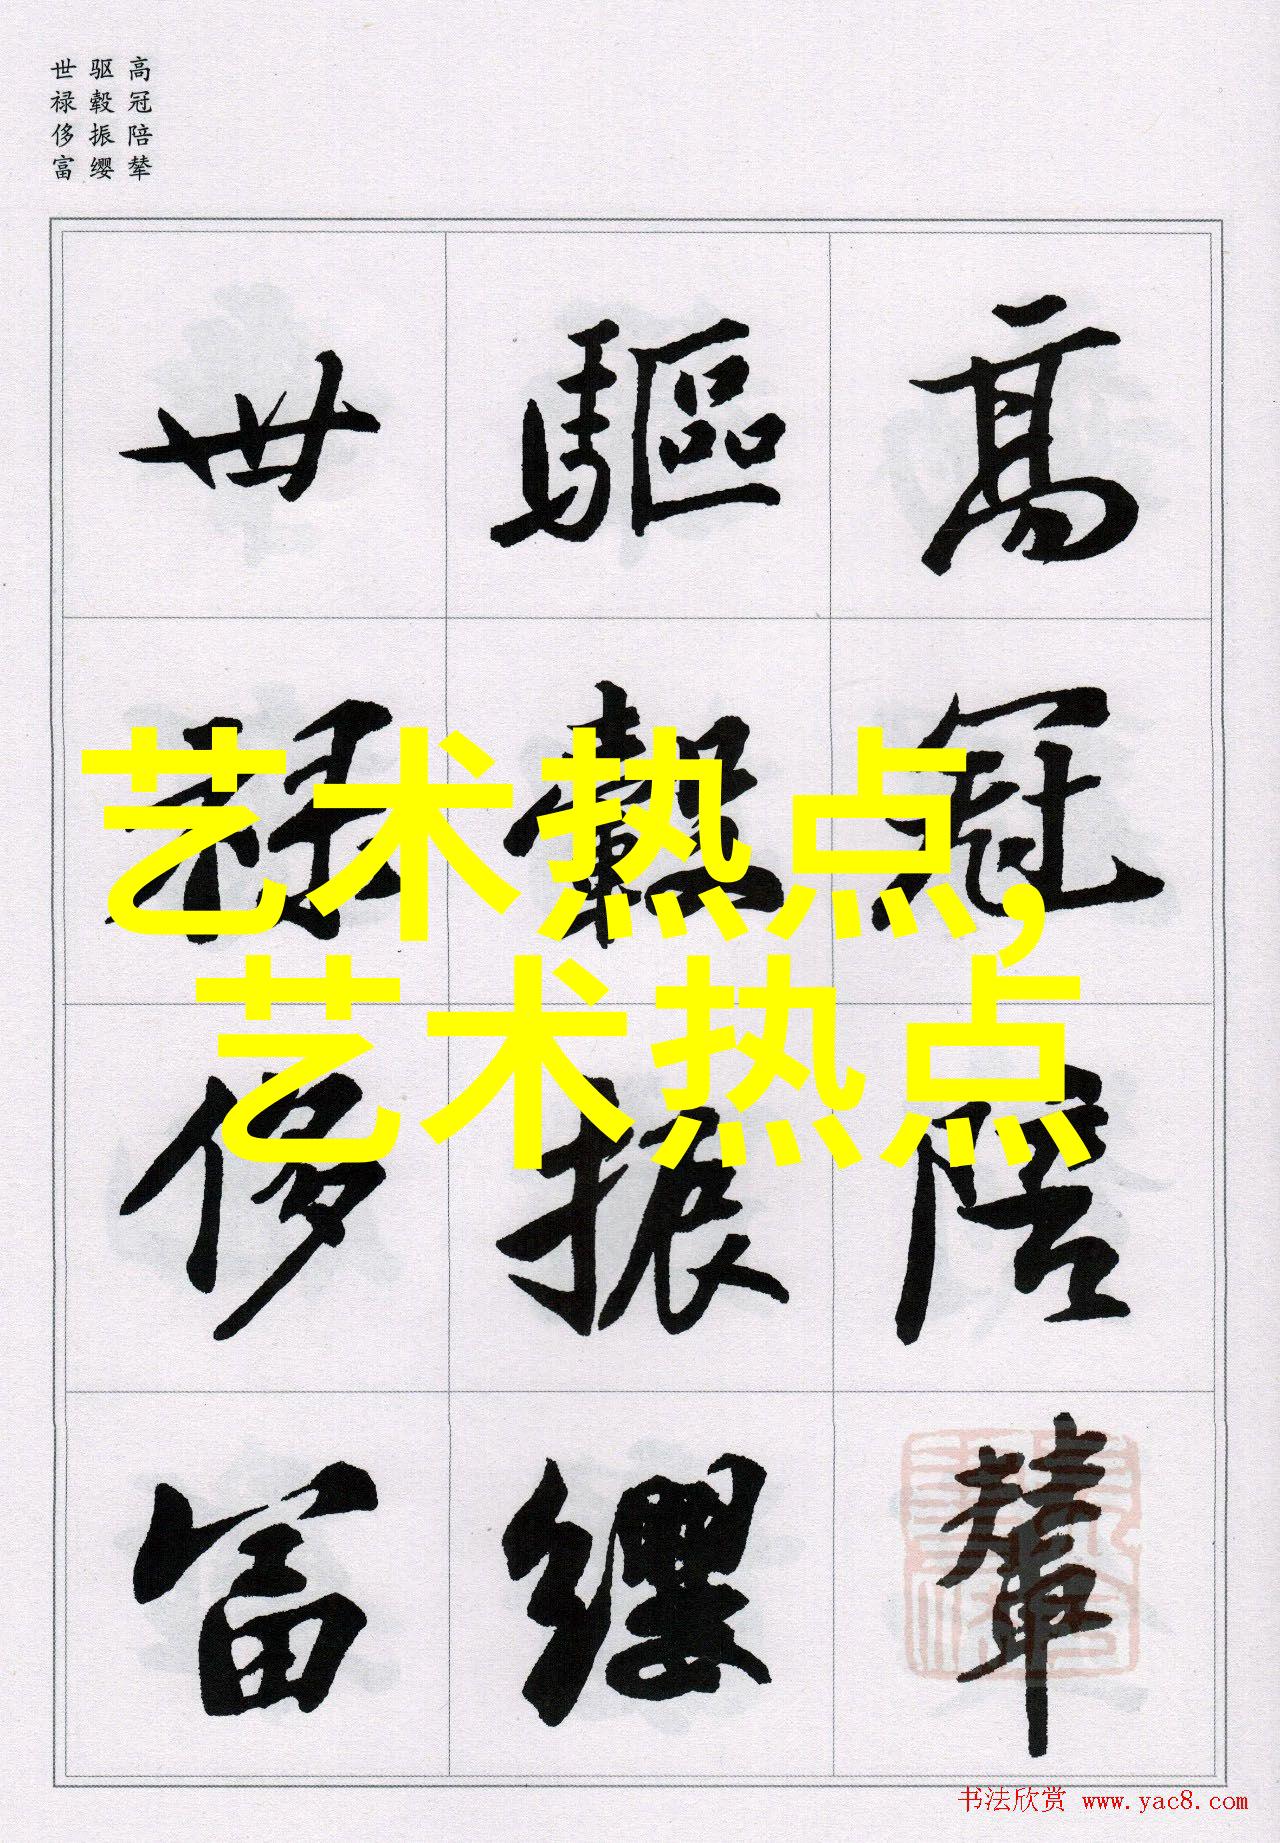 高冠陪辇
驱毂振缨
世禄侈富
高冠陪輦
驅轂振纓
世禄侈富
艺术热点,
艺术热点
书法欣赏 www.yac8.com